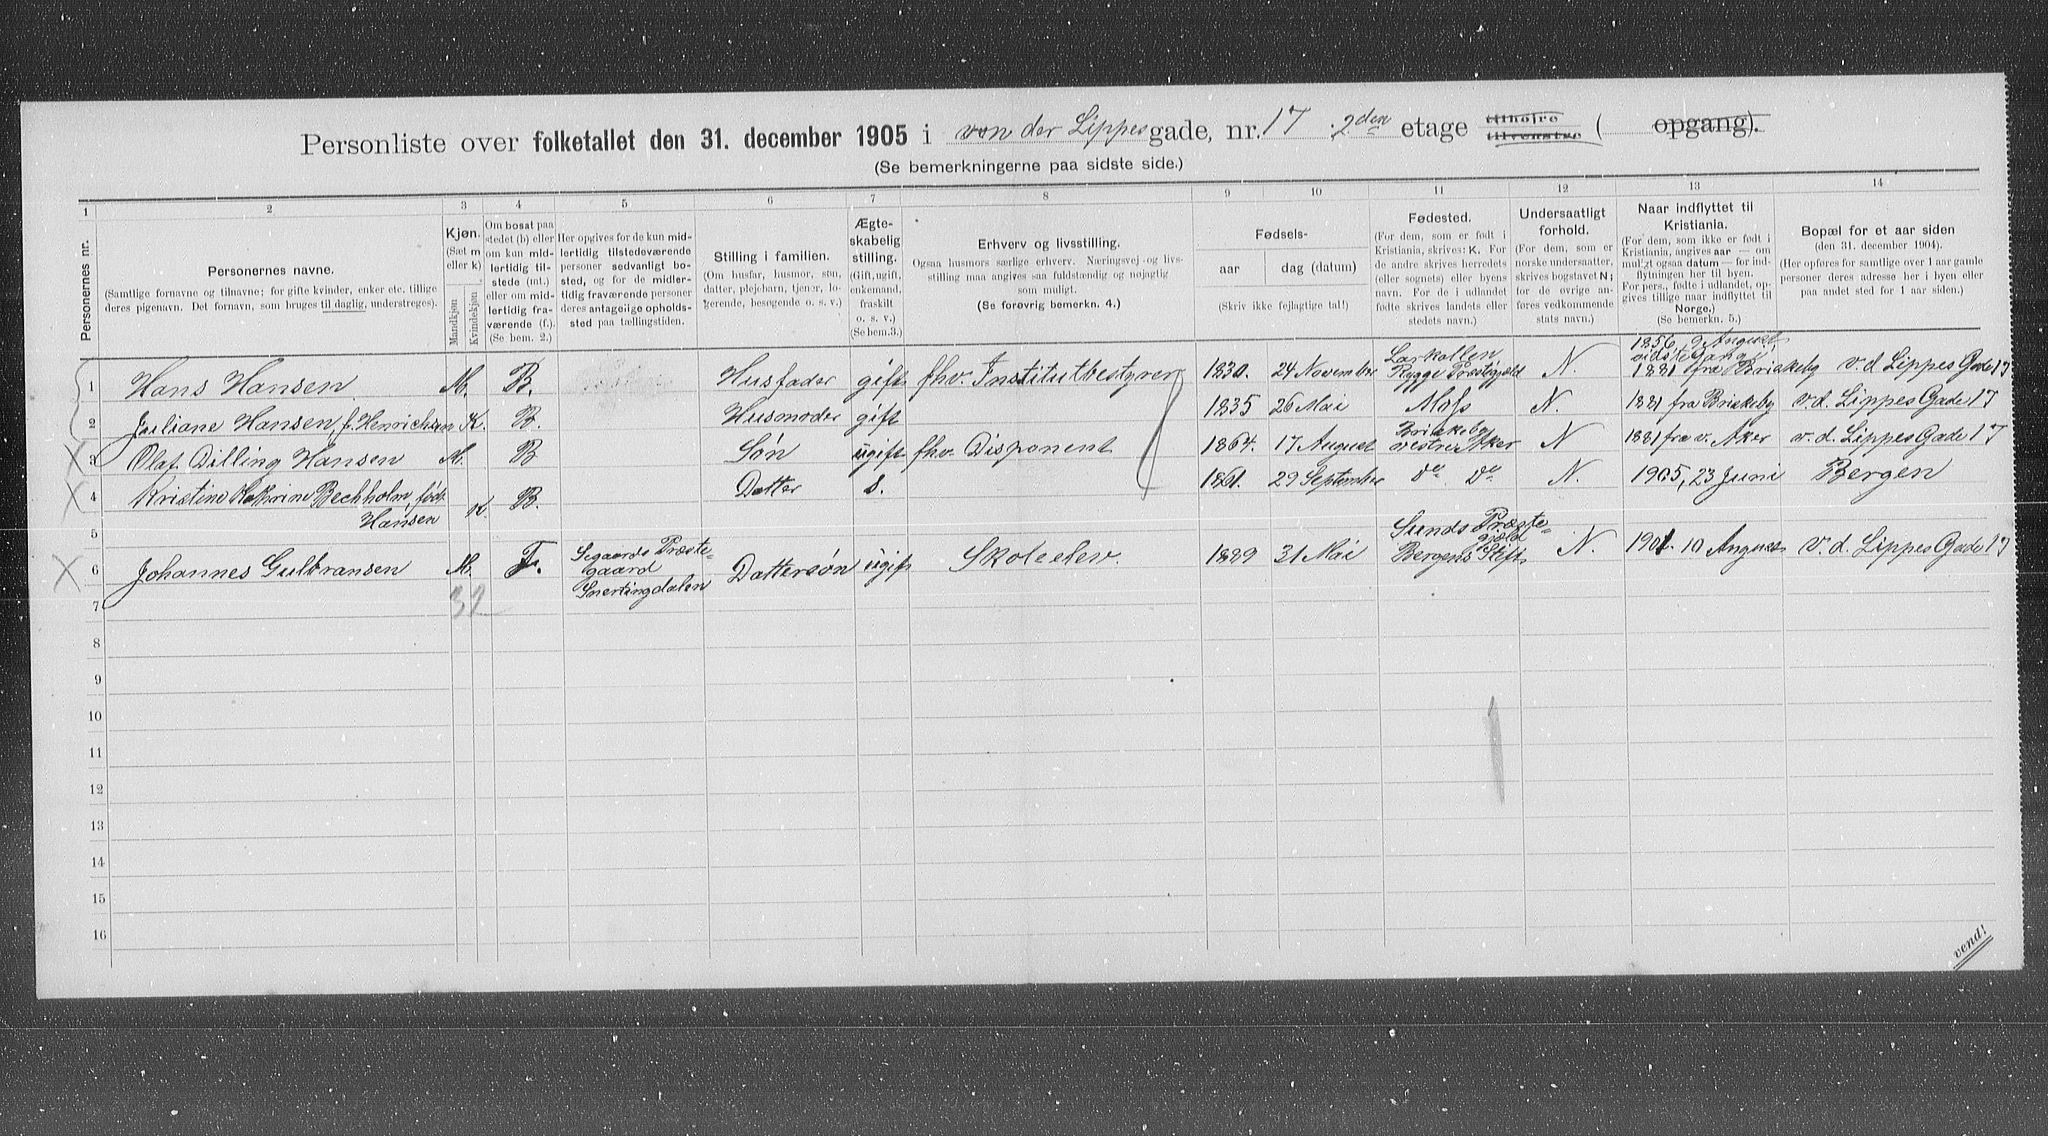 Personliste over folketallet den 31. december 1905 i von der Lippes gade, nr. 17 . 2den etage tilhøjre tilvenstre ( opgang).
(Se bemerkningerne paa sidste side.)
1 2 3 4 5 6 7 8 9 10 11 12 13 14
Personernes nr.
Personernes navne.
(Samtlige fornavne og tilnavne; for gifte kvinder, enker etc. tillige
deres pigenavn. Det fornavn, som bruges til daglig, understreges).
Kjøn.
(Sæt m
eller k)
Mandkjøn
Kvindekjøn
Om bosat paa
stedet (b) eller
om kun mid-
lertidig til-
stede (mt.)
eller om mid-
lertidig fra-
værende (f.)
(Se bem. 2.)
Her opgives for de kun mid-
lertidig tilstedeværende
personer sedvanligt bo-
sted, og for de midler-
tidig fraværende personer
deres antagelige opholds-
sted paa tællingstiden.
Stilling i familien.
(Om husfar, husmor, søn,
datter, plejebarn, tjener, lo-
gerende, besøgende o. s. v.)
Ægte-
skabelig
stilling.
(Gift, ugift,
enkemand,
fraskilt
o. s. v.)
(Se bem.3.)
Erhverv og livsstilling.
Ogsaa husmors særlige erhverv. Næringsvej og livs-
stilling maa angives saa fuldstændig og nøjagtig
som muligt.
(Se forøvrig bemerkn. 4.)
Fødsels-
aar
dag (datum)
(Skriv ikke fejlagtige tal!)
Fødested.
(For dem, som er født i
Kristiania, skrives: K. For
de andre skrives herredets
(eller sognets) eller byens
navn. For de i udlandet
fødte skrives landets eller
stedets navn.)
Undersaatligt
forhold.
(For de norske
undersaatter,
skrives bogstavet N;
for de øvrige an-
føres vedkommende
stats navn.)
Naar indflyttet til
Kristiania.
(For dem, som ikke er født i
Kristiania, angives aar — om
muligt ogsaa datum — for ind-
flytningen her til byen.
For pers., fødte i udlandet, op-
gives tillige naar indflyttet til
Norge.)
(Se bemerkn. 5.)
Bopæl for et aar siden
(den 31. december 1904).
(Her opføres for samtlige over 1 aar gamle
personer deres adresse her i byen eller
paa andet sted for 1 aar siden.)
1856, 9 August,
sidste Gang
1 Hans Hansen M. B. Husfader gift fhv. Institutbestyrer 1830. 24 November Larkollen Rygge Præstegjeld N. 1881 fra Briskeby v. d. Lippes Gade 17
2 Juliane Hansen, f. Henrichsen K. B. Husmoder gift 1835 26 Mai Moss N. 1881 fra Briskeby v. d. Lippes Gade 17
3 Olaf Dilling Hansen M. B Søn ugift fhv. Disponent 1864. 17 August Briskeby vestre Aker N 1881 fra v. Aker v. d. Lippes Gade 17
4 Kristine Kathrine Bechholm, født K. B. Datter s. 1861. 29 September do do N. 1905, 23 Juni Bergen
Hansen
5
6 Johannes Gulbransen M. F. Segaards Præste-
gaard
Snertingdalen Dattersøn ugift Skoleelev. 1889 31 Mai Sunds Præste-
gjeld
Bergens Stift N. 1901 10 August v. d. Lippes Gade 17
32
7
8
9
10
11
12
13
14
15
16
vend!